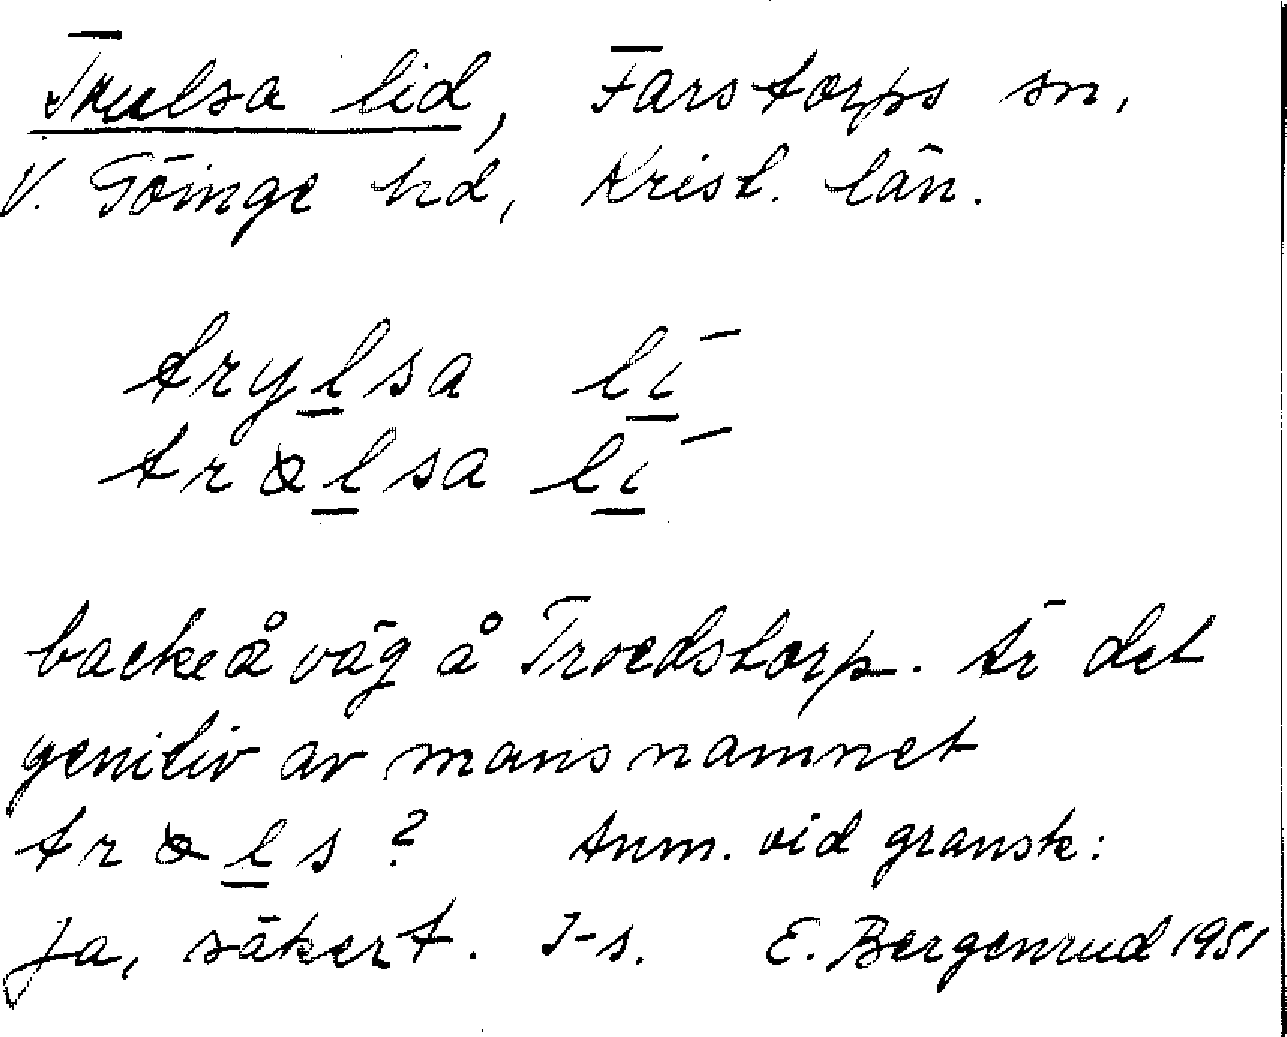 Trulsa lid, Farstorps sn,
V. Göinge hd, Krist. län.
trylsa lī
trɵlsa lī
backe å väg å Troedstorp. Är det
genitiv av mansnamnet
trɵls? Anm. vid gransk:
Ja, säkert. I-s. E. Bergenrud 1951